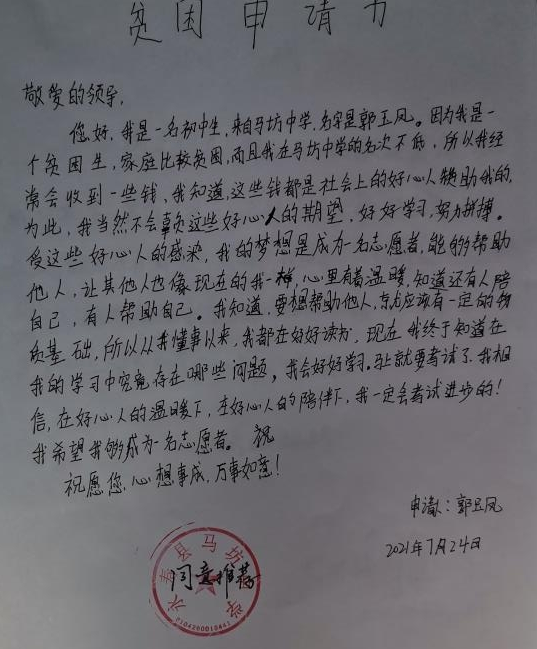 贫困申请书
敬爱的领导,
您好,我是一名初中生,来自马坊中学,名字是郭玉凤。因为我是一
个贫困生,家庭比较贫困,而且我在马坊中学的名次不低,所以我经
常会收到一些钱,我知道,这些钱都是社会上的好心人赞助我的,
为此,我当然不会辜负这些好心人的期望,好好学习,努力拼搏。
受这些好心人的感染,我的梦想是成为一名志愿者,能够帮助
他人,让其他人也像现在的我一样,心里有着温暖,知道还有人陪
自己,有人帮助自己。我知道,要想帮助他人,就应该有一定的物
质基础,所以从我懂事以来,我都在好好读书,现在我终于知道在
我的学习中究竟存在哪些问题,我会好好学习。马上就要考试了,我相
信,在好心人的温暖下,在好心人的陪伴下,我一定会考试进步的!
我希望我够成为一名志愿者。祝
祝愿您,心想事成,万事如意!
申请人:郭玉凤
2021年7月24日
永寿县马坊中学
同意推荐